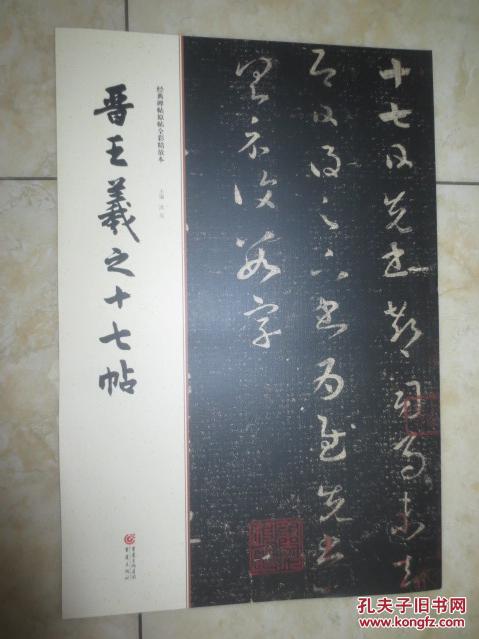 晋王羲之十七帖
经典碑帖原帖全彩精放本
主编
重庆出版集团
重庆出版社
十七日先书郗司马未去
即日得足下书为慰先书
以具示复数字
孔夫子旧书网